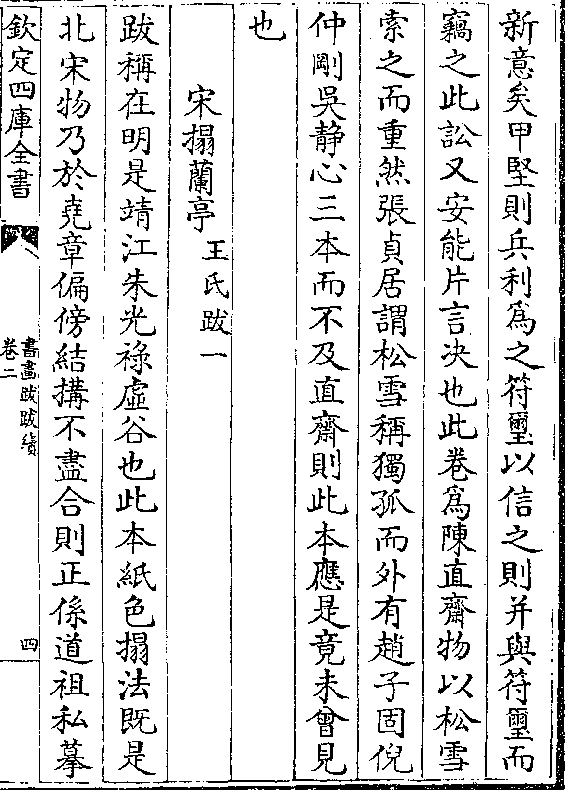 新意矣甲堅則兵利為之符璽以信之則并與符璽而
竊之此訟又安能片言决也此卷為陳直齋物以松雪
索之而重然張貞居謂松雪稱獨孤而外有趙子固倪
仲剛吳静心三本而不及直齋則此本應是竟未曾見
也
宋搨蘭亭 王氏跋一
跋稱在明是靖江朱光祿虛谷也此本紙色搨法既是
北宋物乃於堯章偏傍結搆不盡合則正係道祖私摹
欽定四庫全書
書畫跋跋續
卷二
四